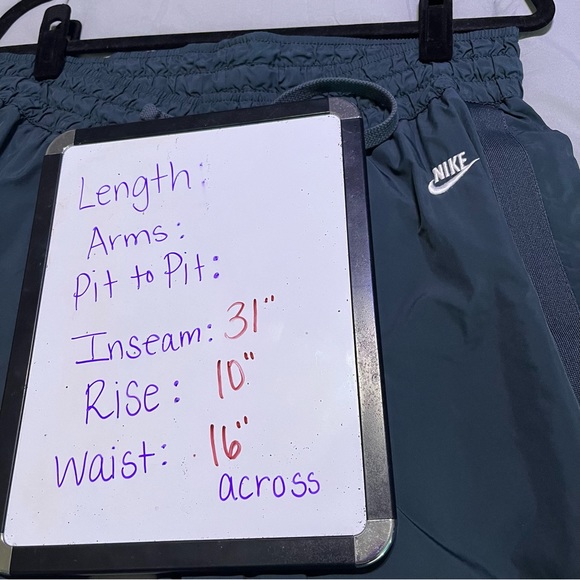 Length:
Arms:
Pit to Pit:
Inseam: 31"
Rise: 10"
Waist: 16"
across
NIKE